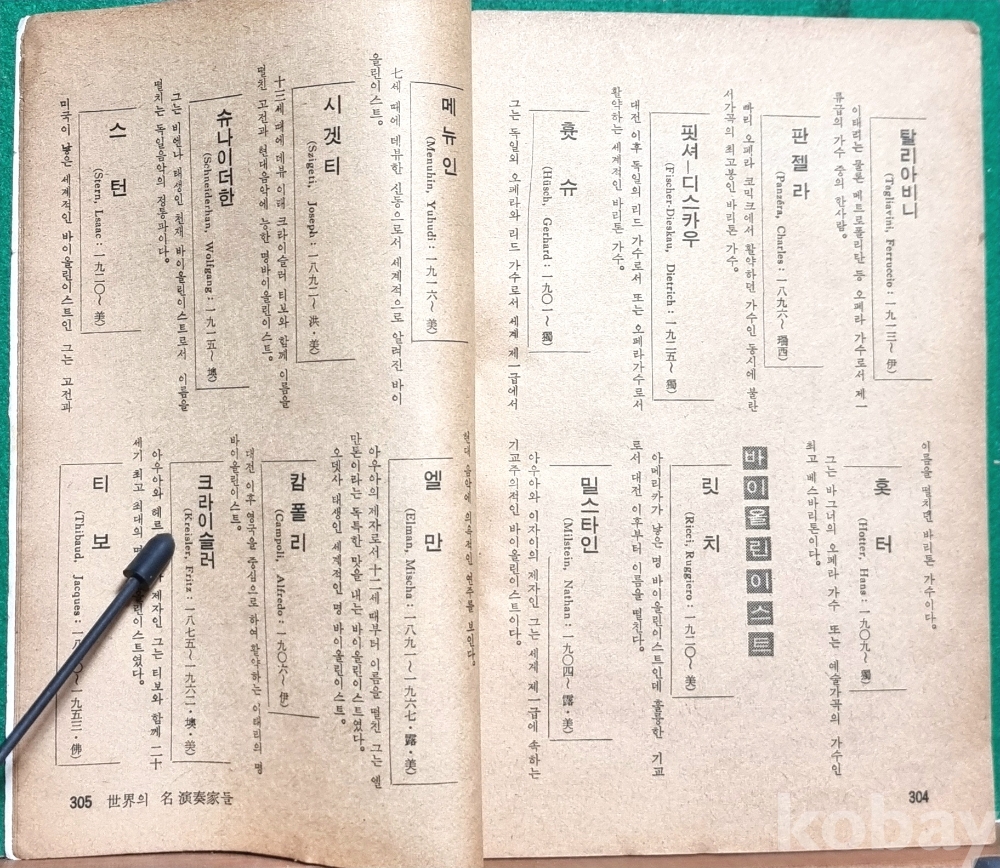 탈리아비니
(Tagliavini, Ferruccio : 一九一三~ 伊)
이태리는 물론 메트로폴리탄 등 오페라 가수로서 제一
류급의 가수 중의 한사람。
판젤라
(Panzéra, Charles : 一八九六~ 瑞西)
빠리 오페라 코믹크에서 활약하던 가수인 동시에 불란
서가곡의 최고봉인 바리톤 가수。
핏셔―디스카우
(Fischer-Dieskau, Dietrich : 一九二五~ 獨)
대전 이후 독일의 리드 가수로서 또는 오페라가수로서
활약하는 세계적인 바리톤 가수。
휫슈
(Hüsch, Gerhard : 一九〇一~ 獨)
그는 독일외 오페라와 리드 가수로서 세계 제一급에서
이름을 떨치면 바리톤 가수이다。
홋터
(Hotter, Hans : 一九〇九~ 獨)
그는 바그너의 오페라 가수 또는 예술가곡의 가수인
최고 베스바리톤이다。
바이올린이스트
릿치
(Ricci, Ruggiero : 一九二〇~ 美)
아메리카가 낳은 명 바이올린이스트인데 훌륭한 기교
로서 대전 이후부터 이름을 떨친다。
밀스타인
(Milstein, Nathan : 一九〇四~ 露・美)
아우아와 이자이의 제자인 그는 세계 제一급에 속하는
기교주의적인 바이올린이스트이다。
304
메뉴인
(Menuhin, Yuhudi : 一九一六~ 美)
七세 때에 데뷰한 신동으로서 세계적으로 알려진 바이
올린이스트。
시겟티
(Szigeti, Joseph : 一八九二~ 洪・美)
十三세 때에 데뷰 이래 크라이슬러 티보와 함께 이름을
떨친 고전과 현대음악에 능한 명바이올린이스트。
슈나이더한
(Schneiderhan, Wolfgang : 一九一五~ 墺)
그는 비엔나 태생인 천재 바이올린이스트로서 이름을
떨치는 독일음악의 정통파이다。
스턴
(Stern, Lsaac : 一九二〇~ 美)
미국이 낳은 세계적인 바이올린이스트인 그는 고전과
현대 음악에 의욕적인 연주를 보인다。
엘만
(Elman, Mischa : 一八九一~一九六七・露・美)
아우아의 제자로서 十二세 때부터 이름을 떨친 그는 엔
만돈이라는 독특한 맛을 내는 바이올린이스트였다。
오뎃사 태생인 세계적인 명 바이올린이스트。
캄폴리
(Campoli, Alfredo : 一九〇六~ 伊)
대전 이후 영국을 중심으로 하여 활약하는 이태리의 명
바이올린이스트。
크라이슬러
(Kreisler, Fritz : 一八七五~一九六二・墺・美)
아우아와 헤르 제자인 그는 티보와 함께 二十
세기 최고 최대의 명 올린이스트였다。
티보
(Thibaud, Jacques : 一八 〇~一九五三・佛)
305 世界의 名演奏家들
kobay